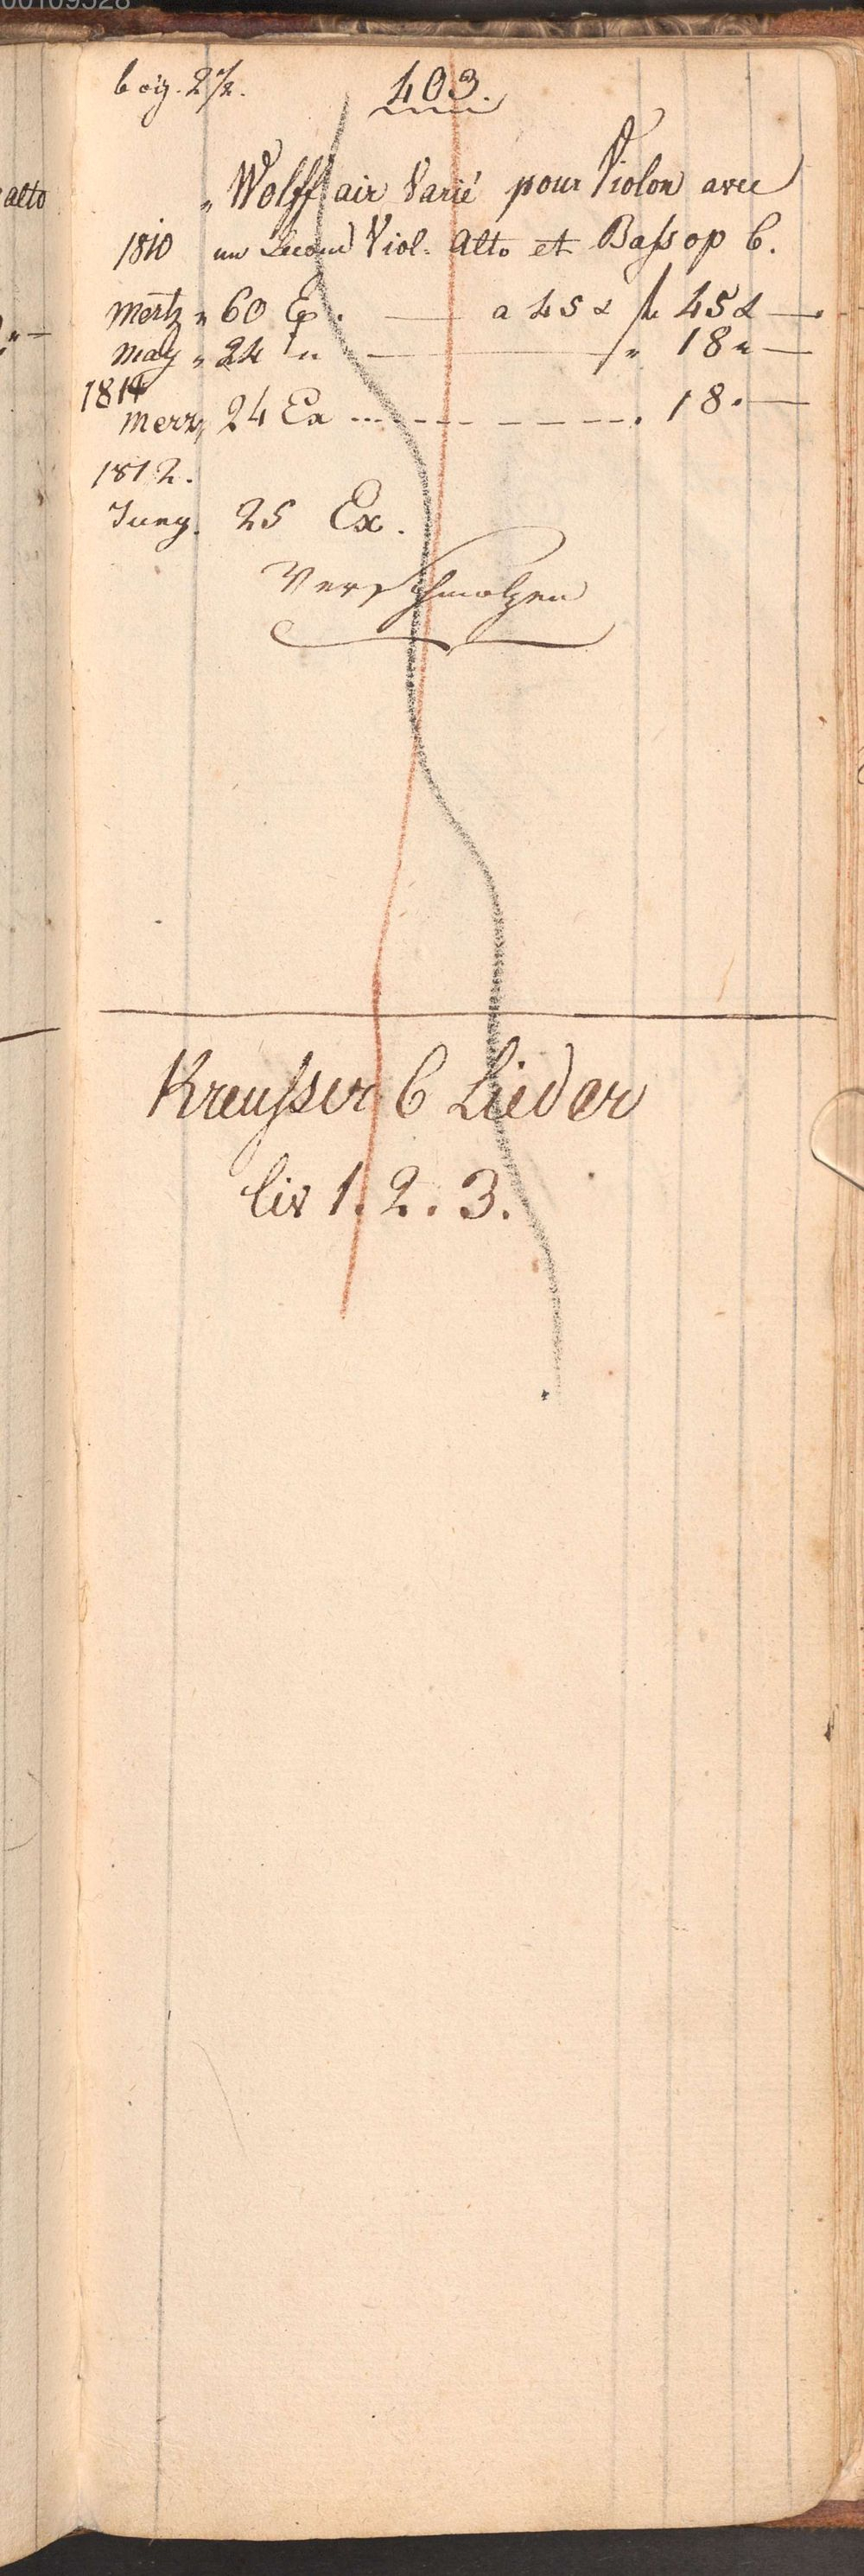 00109528
bog. 2 1/2.
403.
alto
„ Wolff air Varié pour Violon avec
1810 un Second Viol. Alto et Basso op 6.
Mertz „ 60 E. — a 45 x f 45 x —
May „ 24 „ — „ 18 „ —
1811
Merz „ 24 Ex ... — — — . 18 . —
1812.
Juny. 25 Ex.
Verschmolzen
Kreusser 6 Lieder
liv 1. 2. 3.